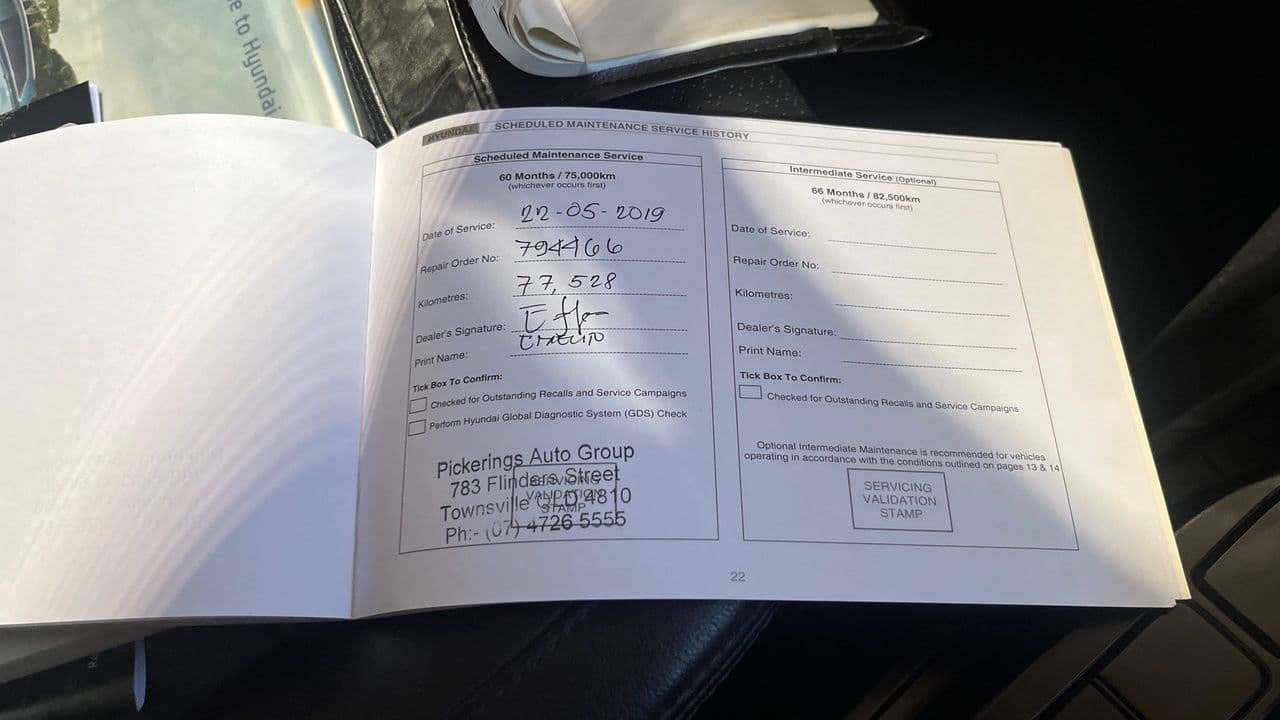 e to Hyundai
HYUNDAI SCHEDULED MAINTENANCE SERVICE HISTORY
Scheduled Maintenance Service
60 Months / 75,000km
(whichever occurs first)
Date of Service: 22-05-2019
Repair Order No: 794466
Kilometres: 77,528
Dealer's Signature:
Print Name:
Tick Box To Confirm:
Checked for Outstanding Recalls and Service Campaigns
Perform Hyundai Global Diagnostic System (GDS) Check
Pickerings Auto Group
783 Flinders Street
Townsville QLD 4810
Ph:- (07) 4726 5555
SERVICING
VALIDATION
STAMP
Intermediate Service (Optional)
66 Months / 82,500km
(whichever occurs first)
Date of Service:
Repair Order No:
Kilometres:
Dealer's Signature:
Print Name:
Tick Box To Confirm:
Checked for Outstanding Recalls and Service Campaigns
Optional Intermediate Maintenance is recommended for vehicles
operating in accordance with the conditions outlined on pages 13 & 14
SERVICING
VALIDATION
STAMP
22